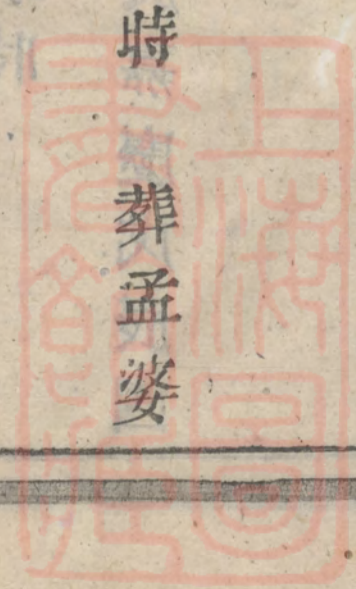 時 葬孟婆
上海圖
書館藏